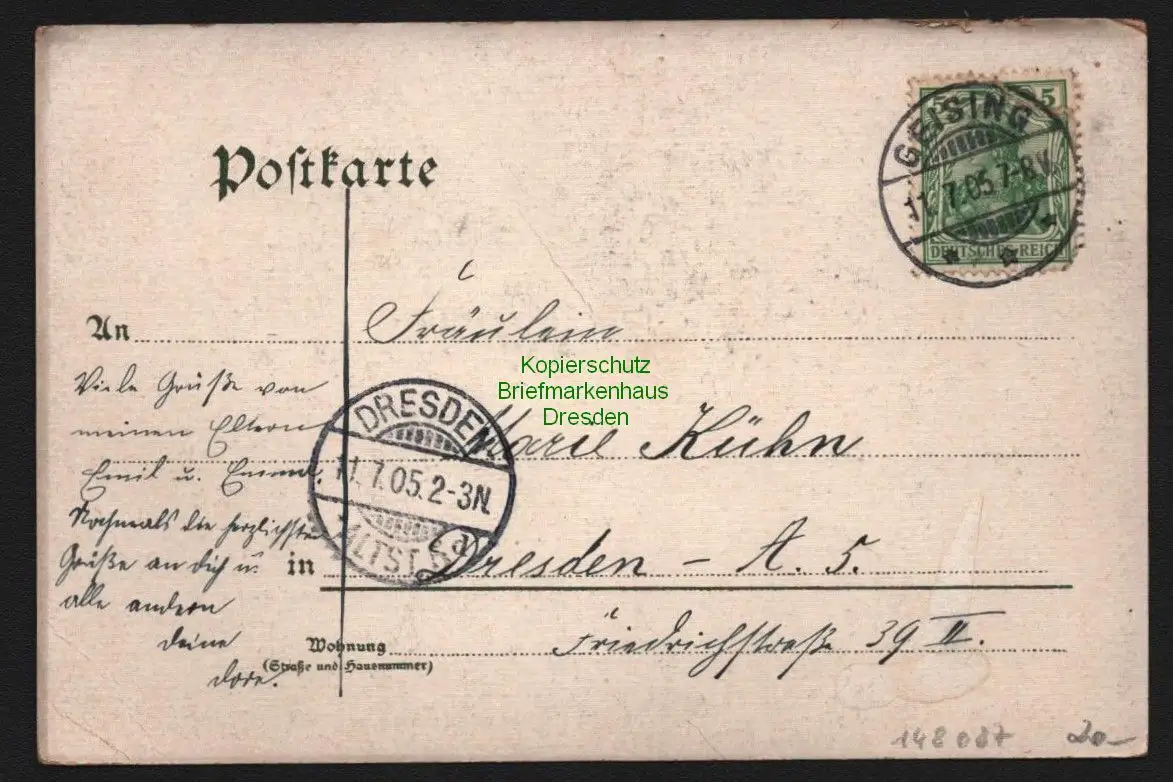 Postkarte
5 5
DEUTSCHES REICH
GEISING
11.7.05.7-8V.
An Fräulein
Kopierschutz
Briefmarkenhaus
Dresden
Marie Kühn
in Dresden - A. 5.
Friedrichstraße 39 II.
Wohnung
(Straße und Hausnummer)
DRESDEN
11.7.05.2-3N.
ALTST.
d
Viele Grüße von
meinen Eltern
Emil u. Emma.
Nochmals die herzlichsten
Grüße an Dich u.
alle andern
Deine
Dore.
148087
20-